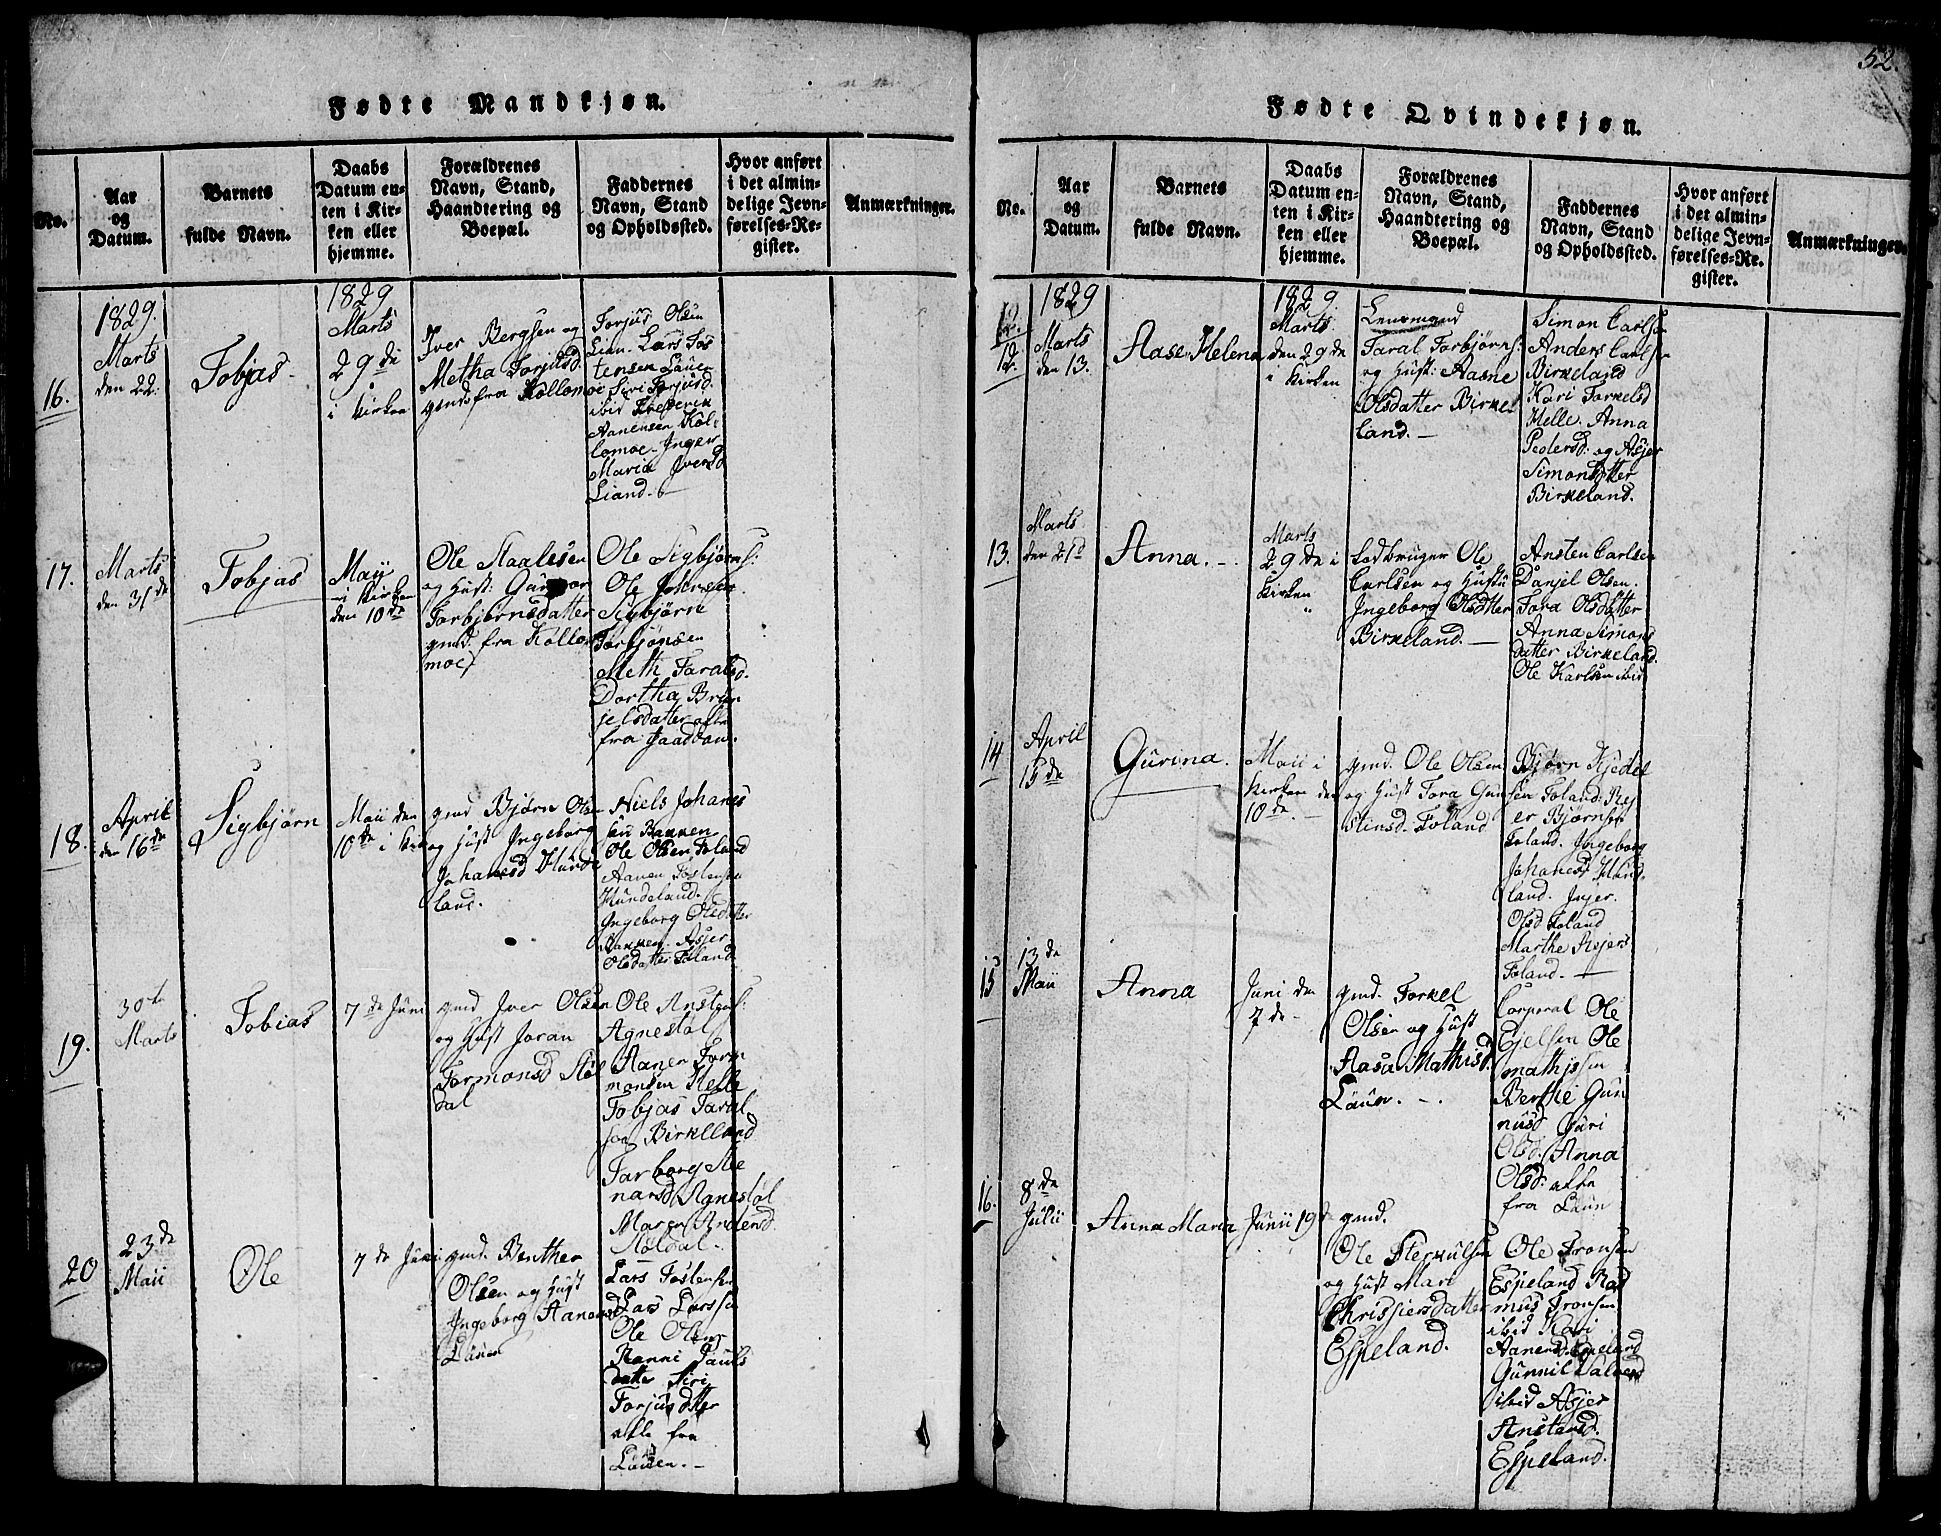 Fødte Mandkjøn.
No.
Aar
og
Datum.
Barnets
fulde Navn.
Daabs
Datum en-
ten i Kir-
ken eller
hjemme.
Forældrenes
Navn, Stand,
Haandtering og
Boepæl.
Faddernes
Navn, Stand
og Opholdssted.
Hvor anført
i det almin-
delige Jevn-
førelses-Re-
gister.
Anmærkninger.
16.
1829.
Marts
den 22.
Tobjas
1829
Marts
29 de
i kirken
Iver Bergsen og
Metha Torjusd.
gmds fra Kollomoe
Torjus Olsen
Lien. Lars Tos
tensen Läuen
Siri Torjusd.
ibid Frederik
Aanensen Kol-
lomoe. Inger
Maria Iversd
Liand.
17.
Marts
den 31 de
Tobjas
Maij
i kirken
den 10 de
Ole Staalesen
og Hust: Gunvor
Torbjørnsdatter
gmd. fra Kollo
moe
Ole Sigbjørns:
Ole Johnsen
Sigbjørn
Torbjønsen
Meth Taralsd.
Dortha Bryn
jelsdatter alle
fra Haadvan.
18.
April
den 16 de
Sigbjørn
Maii den
10 de i kirk
gmd Bjørn Olsen
og Hust Ingeborg
Johanesd Hunde
land.
Niels Johanes
sen Bakken
Ole Olsen Foland
Aanen Tostensen
Hundeland.
Ingeborg Olsdatter
Bakken. Asjer
Olsdatter Foland
19.
30 te
Marts
Tobias
7 de Juni
gmd Iver Olsen
og Hust Joran
Tormonsd Støl
dal
Ole Anstens:
Agnestøl
Aanen Torm
monsen Helle
Tobjas Taral
son Birkeland
Tarborg Ste
narsd Agnestøl
Maren Andersd.
Støldal.
20
23 de
Maii
Ole
7 de Juni
gmd. Benther
Olsen og Hust
Ingeborg Aanensd
Läuen
Lars Tostensen
Lars Larssen
Ole Olsen
Ranni Pauls
datter Siri
Torjusdtter
alle fra
Läuen.
52.
Fødte Qvindekjøn.
No.
Aar
og
Datum.
Barnets
fulde Navn.
Daabs
Datum en-
ten i Kir-
ken eller
hjemme.
Forældrenes
Navn, Stand,
Haandtering og
Boepæl.
Faddernes
Navn, Stand
og Opholdssted.
Hvor anført
i det almin-
delige Jevn-
førelses-Re-
gister.
Anmærkninger.
12.
1829
Marts
den 13.
Aase Helena
1829.
Marts
den 29 de
i kirken
Lensmand
Taral Torbjørns:
og Hust: Aasne
Olsdatter Birke
land.
Simon Carlsen
Anders Carlsen
Birkeland
Kari Torkelsd
Helle. Anna
Pedersd. og Asjer
Simonsdatter
Birkeland.
13.
Marts
den 21 d
Anna.
Marts
29 de i
kirken
Ladbruger Ole
Carlsen og Hustu
Ingeborg Olsdtter
Birkeland.
Ansten Carlsen
Danjel Olsen.
Tora Olsdatter
Anna Simons
datter Birkeland.
Ole Karlsen ibid
14
April
15 de
Gurina.
Maii i
kirken den
10 de.
gmd. Ole Olsen
og Hust Tora Gun
stinsd. Foland
Bjørn Kjedel
sen Foland. Rej
er Bjørnsen
Foland. Ingeborg
Johanesd Hund
land. Injer.
Olsd Foland
Marthe Rejers
Foland.
15
13 de
Maii
Anna
Juni den
7 de
gmd. Torkel
Olsen og Hust
Aasa Mathisd
Läuen.
Corporal Ole
Ejelsen Ole
mathissen
Berthe Gun
nusd Guri
Olsd. Anna
Olsd. alle
fra Läun
16.
8 de
Julii
Anna Maria
Junii 19 d
gmd.
Ole Sterkulsen
og Hust Mari
Chrissjersdatter
Espeland.
Ole Tronsen
Espeland Ras
mus Tronsen
ibid Kari
Aanensd. Espeland
Gunnil Salvesd
ibid Asjer
Anstensd.
Espeland.